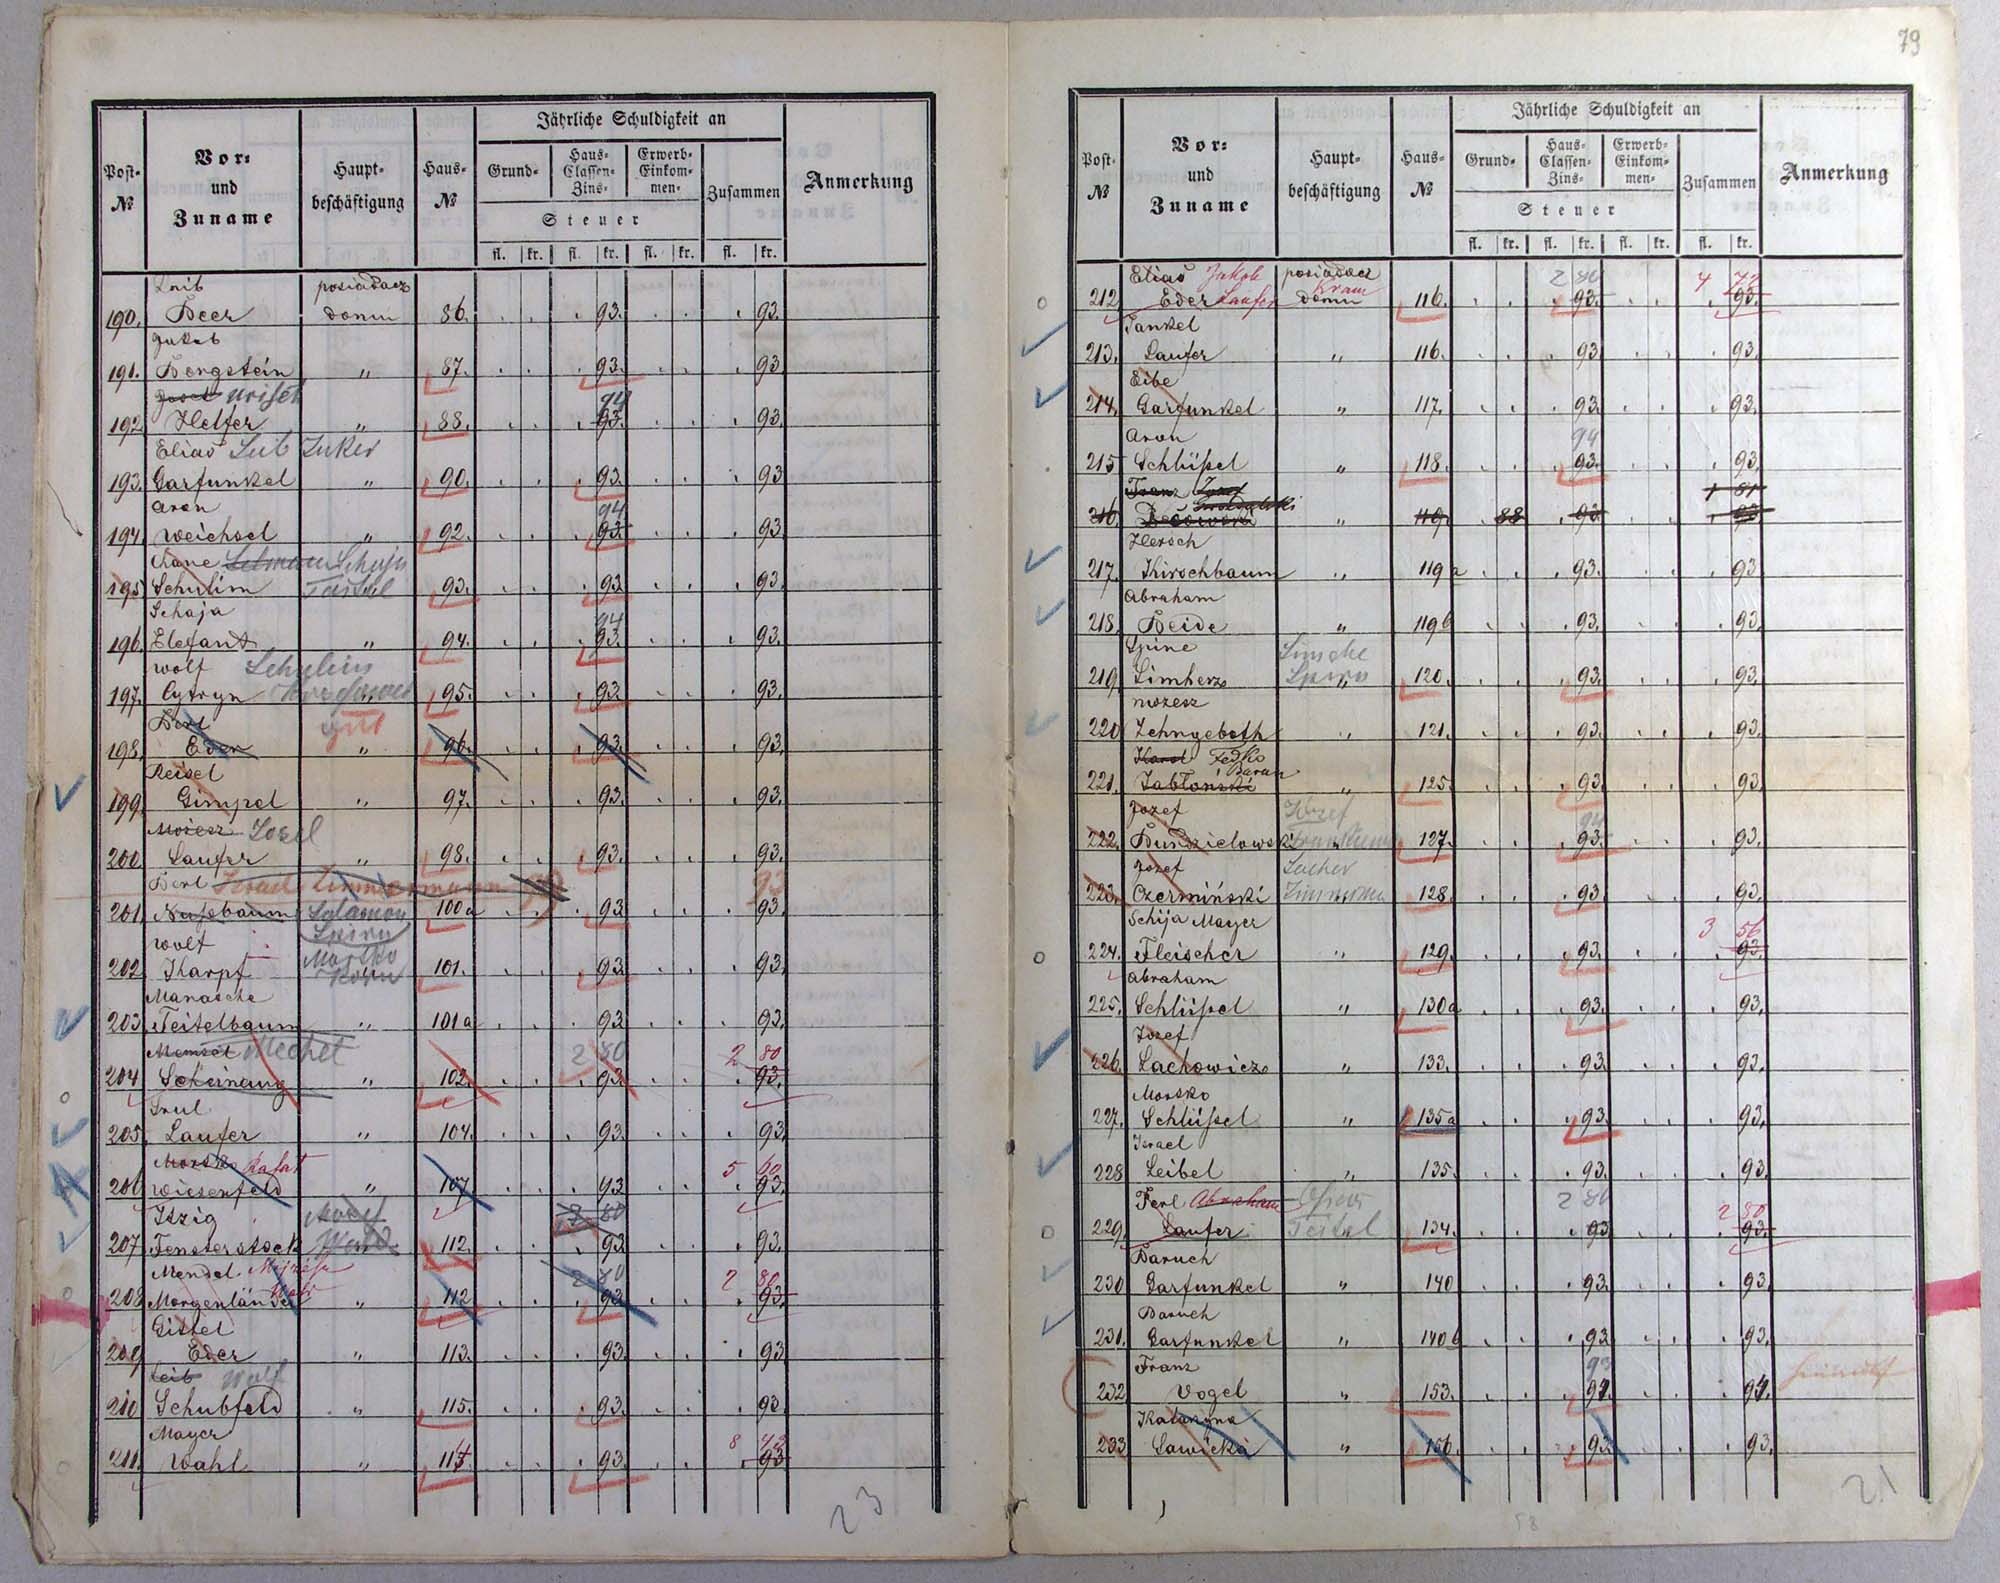 Post-№ Vor- und Zuname Haupt-beschäftigung Haus-№ Jährliche Schuldigkeit an Grund- Haus-Classen-Zins- Erwerb-Einkom-men- Steuer Zusammen Anmerkung
fl. kr. fl. kr. fl. kr. fl. kr.
Leib posiadacz
190. Beer domu 86. 93. 93.
Jakob
191. Bergstein " 87. 93. 93
Josel Urisch 94
192 Helfer " 88. 93. 93.
Elias Leib Zuker
193. Garfunkel " 90. 93. 93
Aron 94
194. Weichsel " 92. 93. 93.
Chane Schaja
195 Schulim 93. 93 93.
Schaja 94
196. Elefant " 94. 93. 93.
Wolf Schulim
197. Cytryn 95. 93. 93.
Berl
198. Eder " 96. 93. 93.
Reisel
199. Gimpel " 97. 93. 93.
Mozesz Josel
200 Laufer " 98. 93. 93.
Berl Israel Zimmermann 93
201. Nussbaum Salamon Spira 100a 93 93.
Wolf Moszko
202 Karpf Korn 101. 93 93.
Manasche
203. Teitelbaum " 101a 93 93.
Memsel Mechel 2 80 2 80
204 Scheinaug " 102 93. 93.
Srul
205. Laufer " 104. 93. 93.
Moszko Rafat 5 60
206 Wiesenfeld " 107 93 93.
Itzig 2 80
207 Fensterstock 112. 93 93.
Mendel 2 80 2 80
208 Morgenländer " 112 93 93.
Gittel
209 Eder " 113. 93. 93
Leib Wolf
210 Schubfeld " 115. 93. 93.
Mayer 8 42
211. Wahl " 115 93. 93
23
79
Post-№ Vor- und Zuname Haupt-beschäftigung Haus-№ Jährliche Schuldigkeit an Grund- Haus-Classen-Zins- Erwerb-Einkom-men- Steuer Zusammen Anmerkung
fl. kr. fl. kr. fl. kr. fl. kr.
Elias Jakob posiadacz 2 80 4 72
212 Eder Laufer domu 116. 93. 93.
Jankel
213. Laufer " 116. 93 93.
Eibe
214. Garfunkel " 117. 93. 93.
Aron 94
215 Schlüssel " 118. 93. 93.
Franz 1 81
216. " 119. 88 93
Hersch
217. Kirschbaum " 119a 93. 93
Abraham
218. Beide " 119b 93. 93.
Spine
219. Limherz Spira 120. 93. 93.
Mozesz
220 Zehngeboth " 121. 93. 93.
Karol Fedko Baran
221. Jabłoński " 125. 93. 93.
Jozef Jozef 94
222. Budzielowski 127. 93. 93.
Jozef Lacher
223. Ozermiński 128. 93 93.
Schija Mayer 3 56
224. Fleischer " 129. 93. 93.
Abraham
225. Schlüssel " 130a 93. 93.
Jozef
226. Lachowicz " 133. 93. 93.
Moszko
227. Schlüssel " 135a 93. 93.
Israel
228 Leibel " 135. 93. 93.
Ferl Abraham 2 80 2 80
229. Laufer Teitel 134. 93 93.
Baruch
230 Garfunkel " 140 93. 93.
Baruch
231. Garfunkel " 140b 93. 93.
Franz 93
232 Vogel " 153. 94. 94.
Katarzyna
233 Sawicka " 156. 93. 93.
21
58